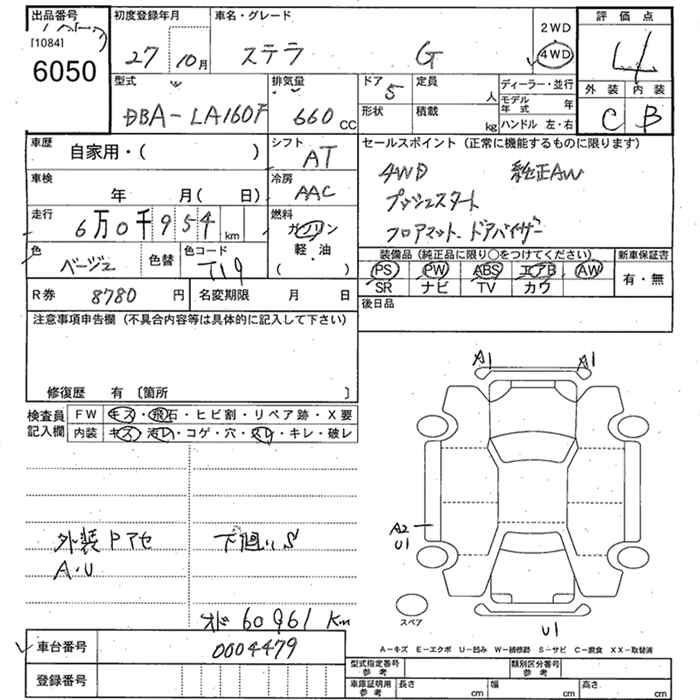 出品番号 初度登録年月 車名・グレード 2WD 評価点
[1084]
6050 27 10月 ステラ G 4WD 4
型式 排気量 ドア 5 定員 人 ディーラー・並行 外装 内装
DBA-LA160F 660 CC 形状 積載 kg モデル年式 年 C B
ハンドル 左・右
車歴 自家用・( ) シフト AT セールスポイント(正常に機能するものに限ります)
車検 年 月( 日) 冷房 AAC 4WD 純正AW
走行 6万0千954km 燃料 ガソリン プッシュスタート
軽・油 フロアマット、ドアバイザー
色 ベージュ 色替 色コード T19 ( ) 装備品(純正品に限り○をつけてください) 新車保証書
PS PW ABS エアB AW 有・無
R券 8780円 名変期限 月 日 SR ナビ TV カワ
注意事項申告欄(不具合内容等は具体的に記入して下さい) 後日品
修復歴 有 〔箇所 〕
A1 A1
検査員 FW キズ・飛石・ヒビ割・リペア跡・X要
記入欄 内装 キズ・汚レ・コゲ・穴・スレ・キレ・破レ
外装Pアセ 下廻りS A2
A・U U1
スペア
オド 60961 km U1
車台番号 0004479 A-キズ E-エクボ U-凹み W-補修跡 S-サビ C-腐食 XX-取替済
登録番号 型式指定番号 参考 類別区分番号 参考
車庫証明用 参考 長さ cm 幅 cm 高さ cm